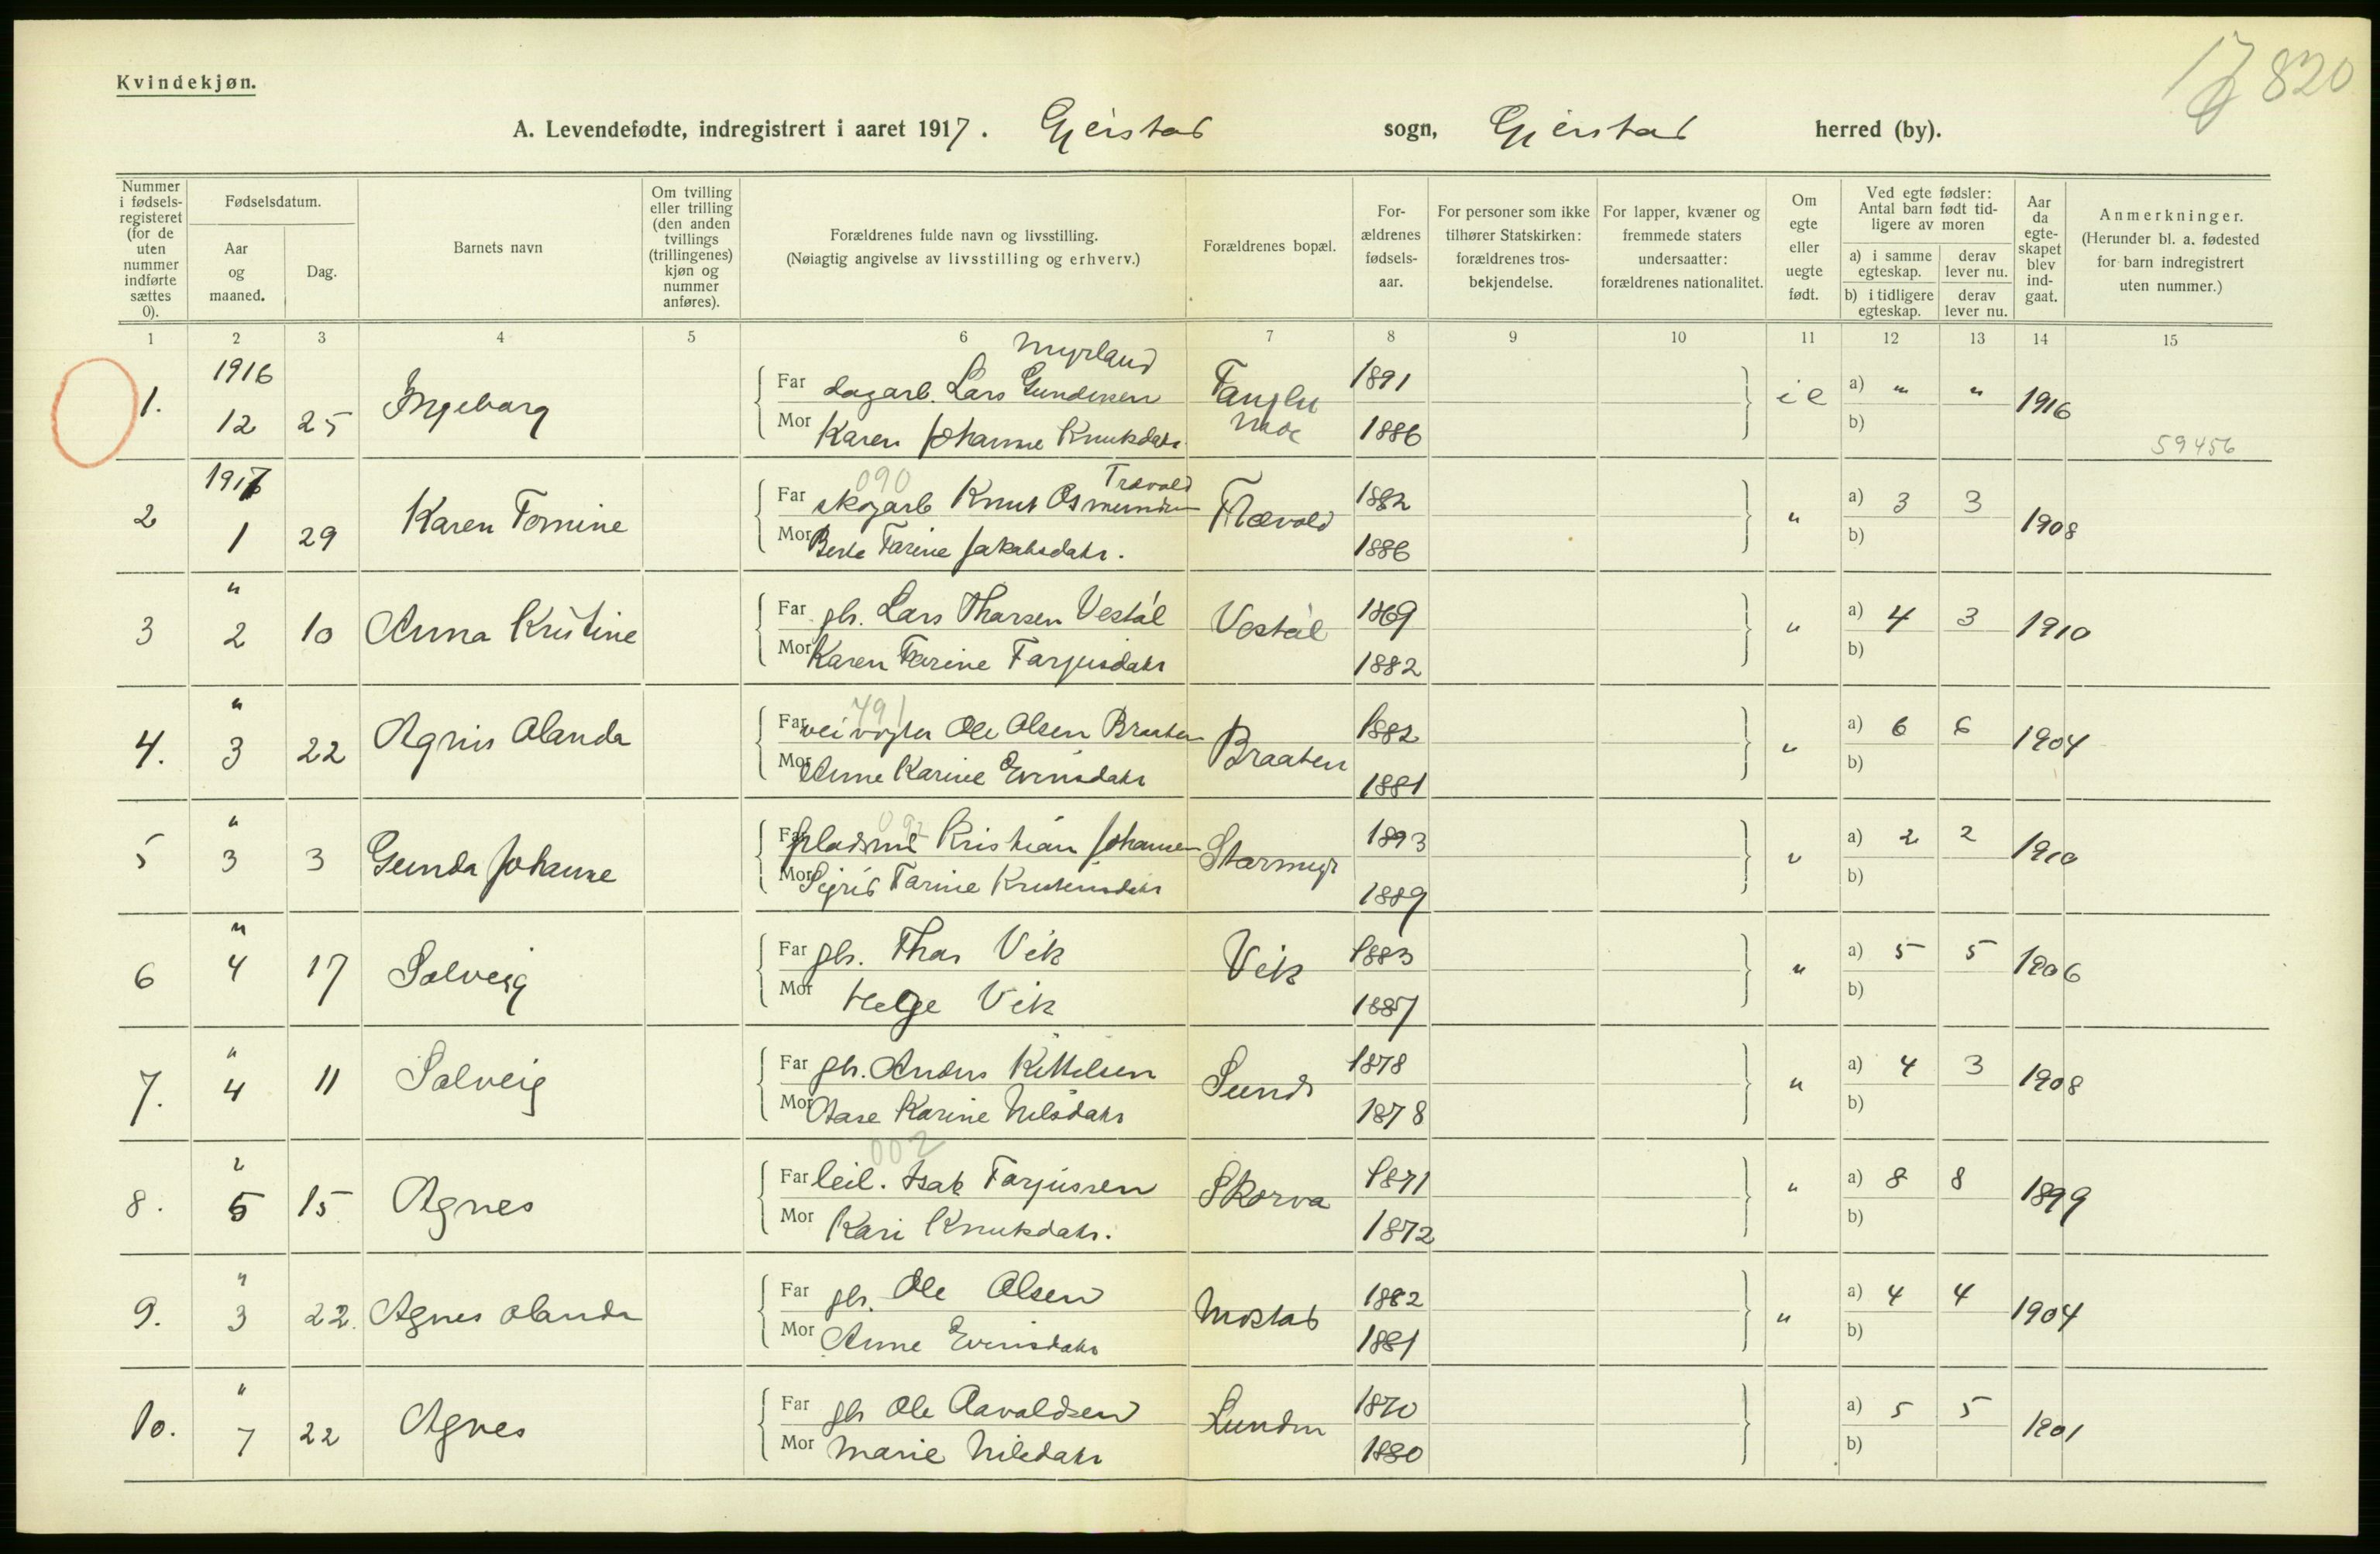 Kvindekjøn.
17 820
A. Levendefødte, indregistrert i aaret 1917. Gjerstad sogn, Gjerstad herred (by).
Nummer i fødsels-registeret (for de uten nummer indførte sættes 0).
Fødselsdatum.
Aar og maaned.
Dag.
Barnets navn
Om tvilling eller trilling (den anden tvillings (trillingenes) kjøn og nummer anføres).
Forældrenes fulde navn og livsstilling.
(Nøiagtig angivelse av livsstilling og erhverv.)
Forældrenes bopæl.
For-ældrenes fødsels-aar.
For personer som ikke tilhører Statskirken: forældrenes tros-bekjendelse.
For lapper, kvæner og fremmede staters undersaatter: forældrenes nationalitet.
Om egte eller uegte født.
Ved egte fødsler: Antal barn født tid-ligere av moren
a) i samme egteskap.
derav lever nu.
b) i tidligere egteskap.
derav lever nu.
Aar da egte-skapet blev ind-gaat.
Anmerkninger.
(Herunder bl. a. fødested for barn indregistrert uten nummer.)
1 2 3 4 5 6 7 8 9 10 11 12 13 14 15
Myrland
1. 1916 12 25 Ingeborg Far dagarb. Lars Gundersen 1891 a) " " 1916
Mor Karen Johanne Knutsdatr. Moe 1886 b)
59456
090 Trævold
2 1917 1 29 Karen Tomine Far skogarb Knut Osmundsen Trævold 1882 " a) 3 3 1908
Mor Berte Tarine Jakobsdatr. 1886 b)
3 " 2 10 Anna Kristine Far gbr. Lars Thorsen Vestøl Vestøl 1869 " a) 4 3 1910
Mor Karen Tarine Tarjusdatr 1882 b)
791
4. " 3 22 Agnes Olanda Far veivogter Ole Olsen Braaten Braaten 1882 " a) 6 6 1904
Mor Anne Karine Evensdatr 1881 b)
092
5 " 3 3 Gunda Johanne Far pladsmd Kristian Johansen Stormyr 1893 " a) 2 2 1910
Mor Sigrid Tarine 1889 b)
6 " 4 17 Solveig Far gbr. Thor Vik Vik 1883 " a) 5 5 1906
Mor Helge Vik 1887 b)
7. " 4 11 Solveig Far gbr. Anders Kittelsen Sunde 1878 " a) 4 3 1908
Mor Aase Karine Nilsdatr 1878 b)
002
8. " 5 15 Agnes Far leil. Isak Tarjussen Skorva 1871 " a) 8 8 1899
Mor Kari Knutsdatr. 1872 b)
9. " 3 22. Agnes Olanda Far gbr. Ole Olsen Mostad 1882 " a) 4 4 1904
Mor Anne Evensdatr 1881 b)
10. " 7 22 Agnes Far gbr Ole Aavoldsen Lunden 1870 a) 5 5 1901
Mor Marie Nilsdatr 1880 b)